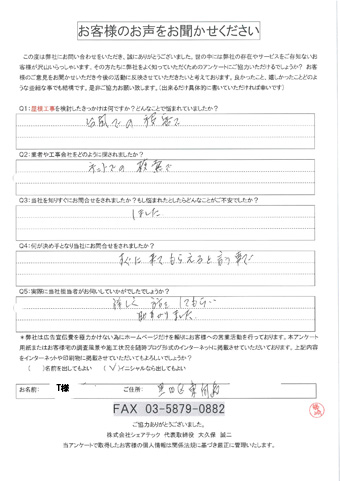 お客様のお声をお聞かせください
この度は弊社にお問い合わせをいただき、誠にありがとうございました。世の中には弊社の存在やサービスをご存知ないお
客様が沢山いらっしゃいます。その方たちに弊社をよく知っていただくためのアンケートにご協力いただけるでしょうか？ お客
様のご意見をお聞かせいただき今後の活動に反映させていただきたいと考えております。良かったこと、嬉しかったことどのよ
うな些細な事でも結構です。是非ご協力お願い致します。（出来るだけ具体的に書いていただければ幸いです）
Q1：屋根工事を検討したきっかけは何ですか？どんなことで悩まれていましたか？
台風での 被害で
Q2：業者や工事会社をどのように探されましたか？
ネットでの 検索で
Q3：当社を知りすぐにお問合せをされましたか？もし悩まれたとしたらどんなことがご不安でしたか？
しました
Q4：何が決め手となり当社にお問合せをされましたか？
すぐに来てもらえると言う事で
Q5：実際に当社担当者がお伺いしていかがでしたでしょうか？
詳しく 話を してもらい
助かりました
＊弊社は広告宣伝費を極力かけない為にホームページだけを頼りにお客様への営業活動を行っております。本アンケート
用紙またはお客様宅の調査風景や施工状況を随時ブログ形式のインターネットに掲載させていただいております。上記内容
をインターネットや印刷物に掲載させていただいてもよろしいでしょうか？
（　）名前を出してもよい （√）イニシャルなら出してもよい
お名前： T様 ご住所： 墨田区
FAX 03-5879-0882
ご協力ありがとうございました。
株式会社シェアテック 代表取締役 大久保 誠二
当アンケートで取得したお客様の個人情報は関係法規に基づき厳正に管理いたします。